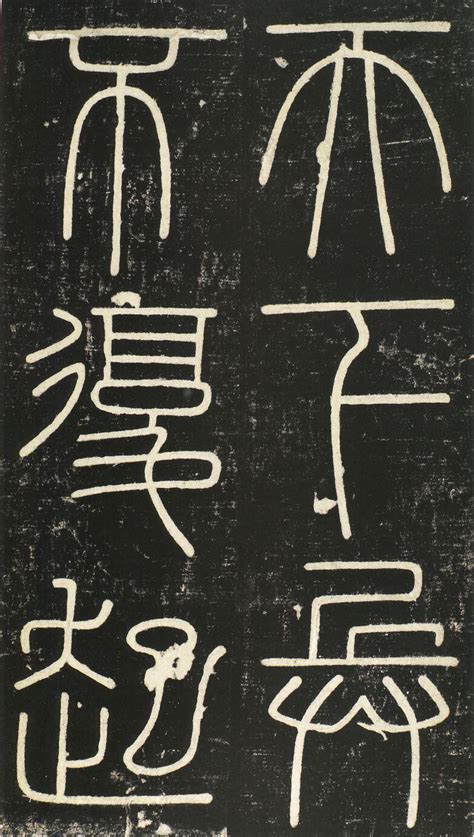 天下兵
不復起